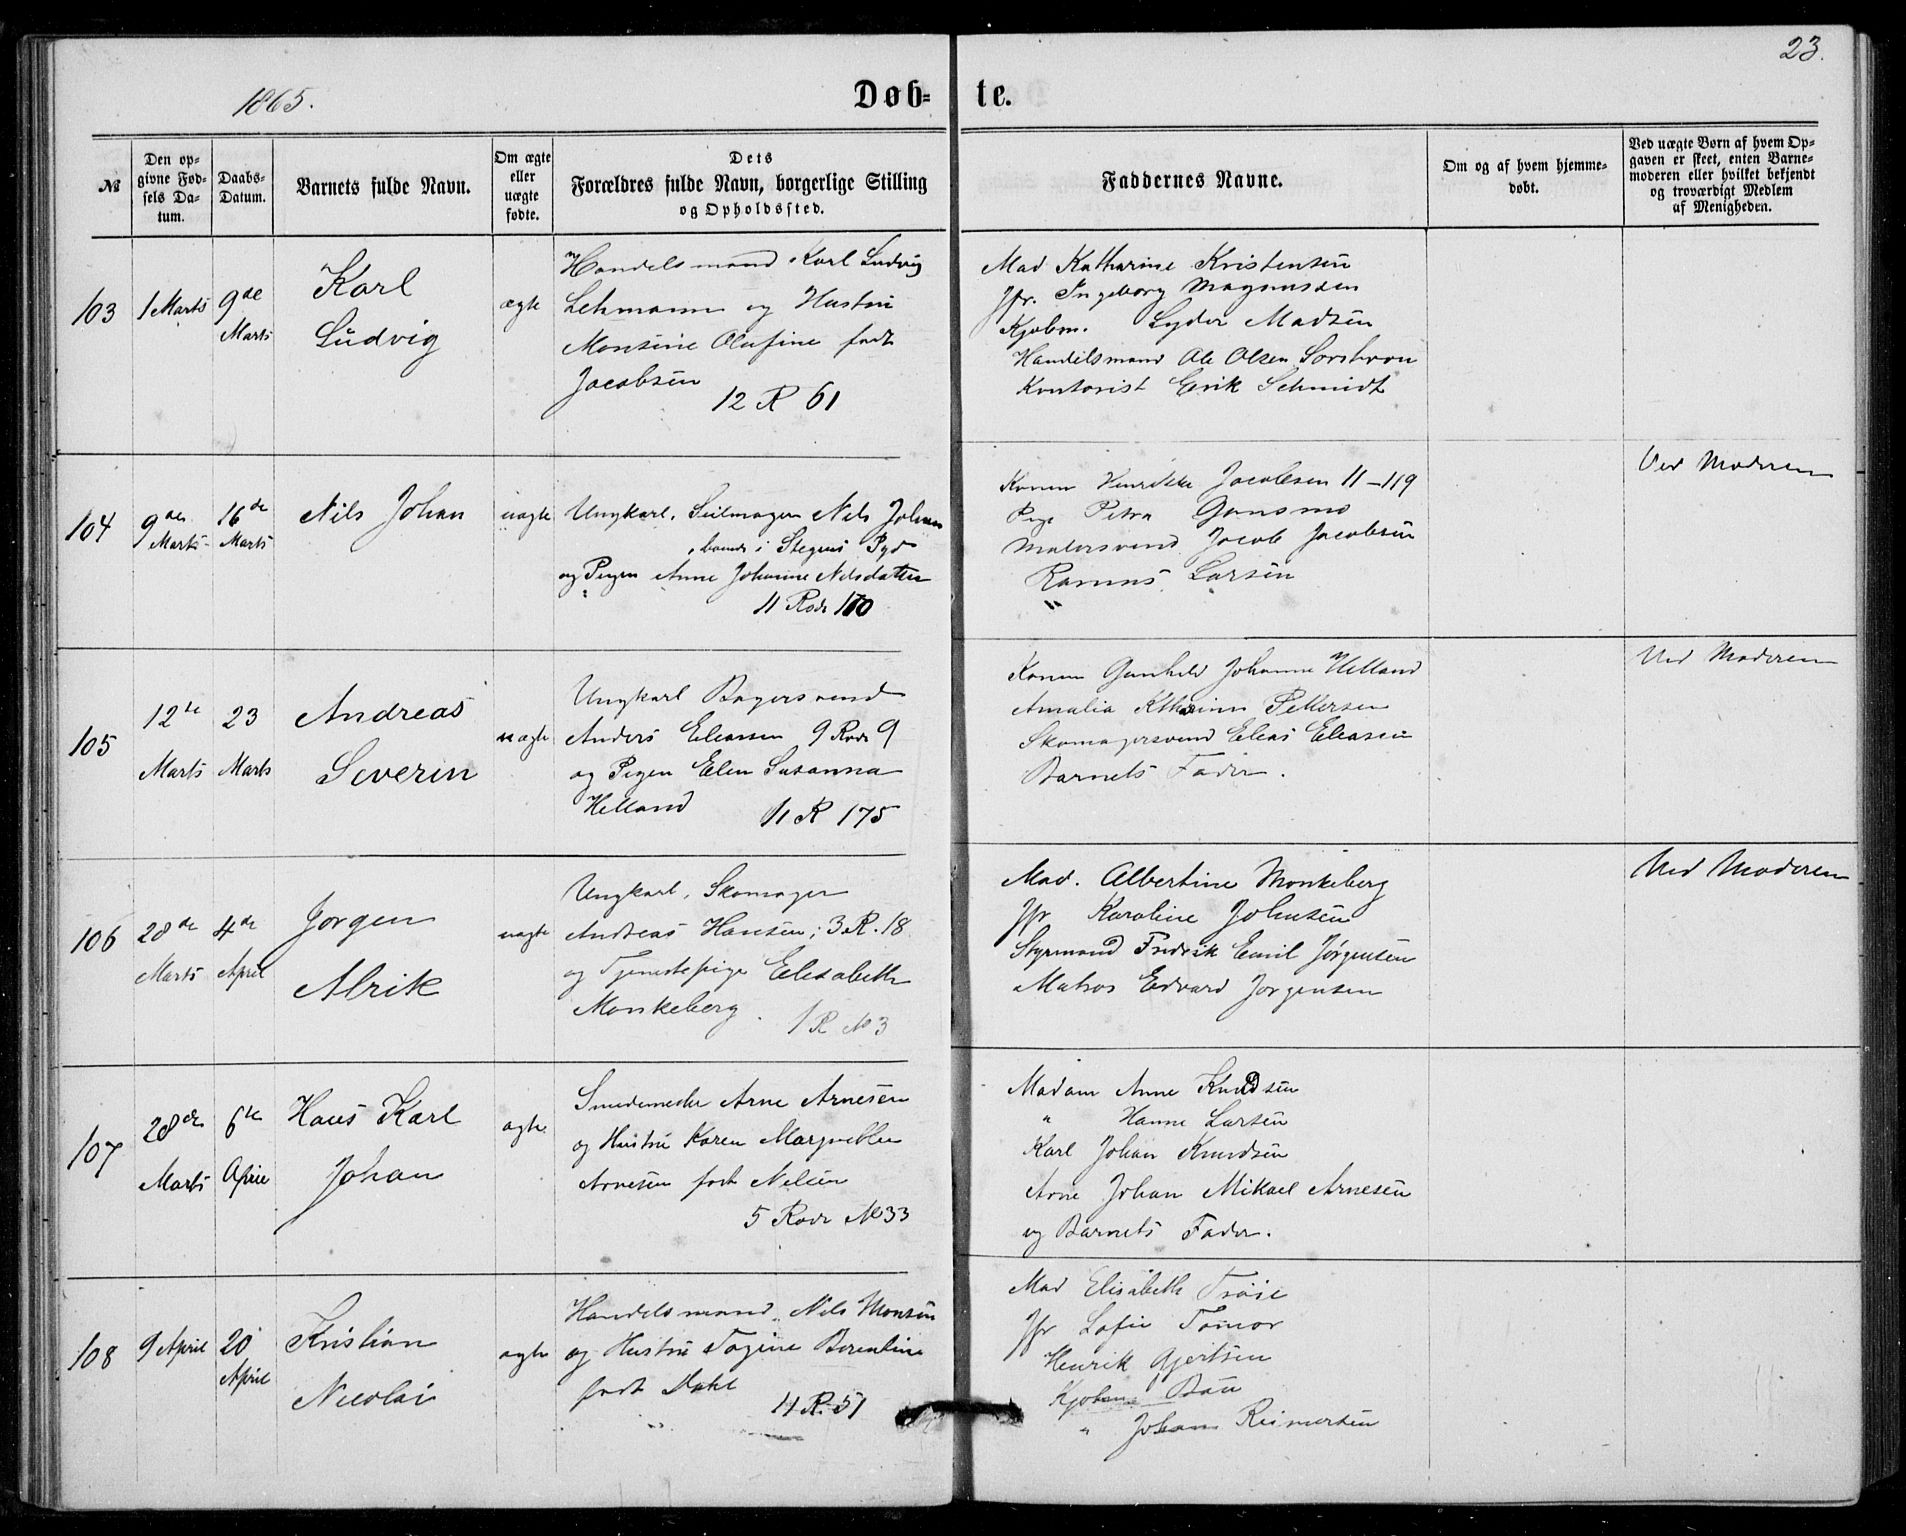 23.
1865.
Døb- te.
№
Den opgivne Fødsels Datum.
Daabs-Datum.
Barnets fulde Navn.
Om ægte eller uægte fødte.
Dets Forældres fulde Navn, borgerlige Stilling og Opholdssted.
Faddernes Navne.
Om og af hvem hjemmedøbt.
Ved uægte Børn af hvem Opgaven er skeet, enten Barnemoderen eller hvilket bekjendt og troværdigt Medlem af Menigheden.
103
1 Marts
9de Marts
Karl
Ludvig
ægte
Handelsmand Karl Ludvig
Lehmann og Hustru
Monsine Olufine født
Jacobsen
12 R 61
Mad Katharine Kristensen
Jfr. Ingeborg Magnussen
Kjøbm. Lyder Madsen
Handelsmand Ole Olsen
Kontorist Erik Schmidt
104
9de Marts
16de Marts
Nils Johan
uægte
Ungkarl, Seilmager Nils Johan
i Stegens Pgd
og Pigen Anne Johanne Nilsdatter
11 Rode 110
Konen Henrikke Jacobsen 11-119
Pige Petra Gansmo
Malersvend Jacob Jacobsen
" Larsen
Ved Moderen
105
12te Marts
23 Marts
Andreas
Severin
uægte
Ungkarl Bagersvend
Anders Eleasen 9 Rode 9
og Pigen Elen Susanna
Helland
11 R 175
Konen Gunhild Johanne Helland
Amalia Pettersen
Skomagersvend Elias Eleasen
Barnets Fader.
Ved Moderen
106
28de Marts
4de April
Jørgen
Alrik
uægte
Ungkarl, Skomager
Andreas Hansen; 3 R. 18
og Tjenestepige Elisabeth
Monkeberg.
1 R № 3
Mad. Albertine Monkeberg
Jfr Karoline Johnsen
Styrmand Fredrik Emil Jørgensen
Matros Edvard Jørgensen
Ved Moderen
107
28de Marts
6te April
Hans Karl
Johan
ægte
Smedemester Arne Arnesen
og Hustru Karen Margrethe
Arnesen født Nilsen
5 Rode № 33
Madam Anne Knudsen
" Hanne Larsen
Karl Johan Knudsen
Arne Johan Mikael Arnesen
og Barnets Fader.
108
9 April
20 April
Kristian
Nicolai
ægte
Handelsmand Nils Monsen
og Hustru Togine Berentine
født Dahl
11 R. 51
Mad Elisabeth Troie
Jfr Sofie
Henrik Gjertsen
Kjøbm.
" Johan Reimertsen